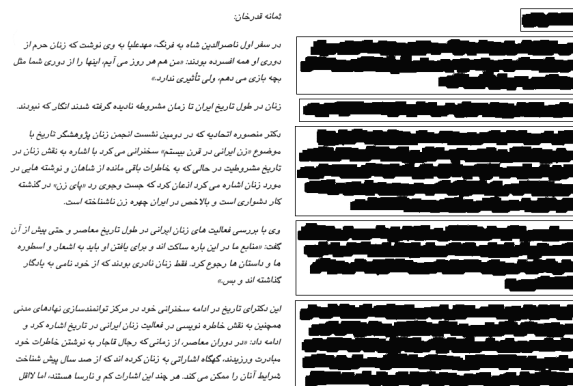 ثمانه قدرخان:
در سفر اول ناصرالدین شاه به فرنگ، مهدعلیا به وی نوشت که زنان حرم از
دوری او همه افسرده بودند: «من هم هر روز می آیم، اینها را از دوری شما مثل
بچه بازی می دهم، ولی تأثیری ندارد.»
زنان در طول تاریخ ایران تا زمان مشروطه نادیده گرفته شدند انگار که نبودند.
دکتر منصوره اتحادیه که در دومین نشست انجمن زنان پژوهشگر تاریخ با
موضوع «زن ایرانی در قرن بیستم» سخنرانی می کرد با اشاره به نقش زنان در
تاریخ مشروطیت در حالی که به خاطرات باقی مانده از شاهان و نوشته هایی در
مورد زنان اشاره می کرد اذعان کرد که جست وجوی رد «پای زن» در گذشته
کار دشواری است و بالاخص در ایران چهره زن ناشناخته است.
وی با بررسی فعالیت های زنان ایرانی در طول تاریخ معاصر و حتی پیش از آن
گفت: «منابع ما در این باره ساکت اند و برای یافتن او باید به اشعار و اسطوره
ها و داستان ها رجوع کرد. فقط زنان نادری بودند که از خود نامی به یادگار
گذاشته اند و بس.»
این دکترای تاریخ در ادامه سخنرانی خود در مرکز توانمندسازی نهادهای مدنی
همچنین به نقش خاطره نویسی در فعالیت زنان ایرانی در تاریخ اشاره کرد و
ادامه داد: «در دوران معاصر، از زمانی که رجال قاجار به نوشتن خاطرات خود
مبادرت ورزیدند، گهگاه اشاراتی به زنان کرده اند که از صد سال پیش شناخت
شرایط آنان را ممکن می کند. هر چند این اشارات کم و نارسا هستند، اما لااقل